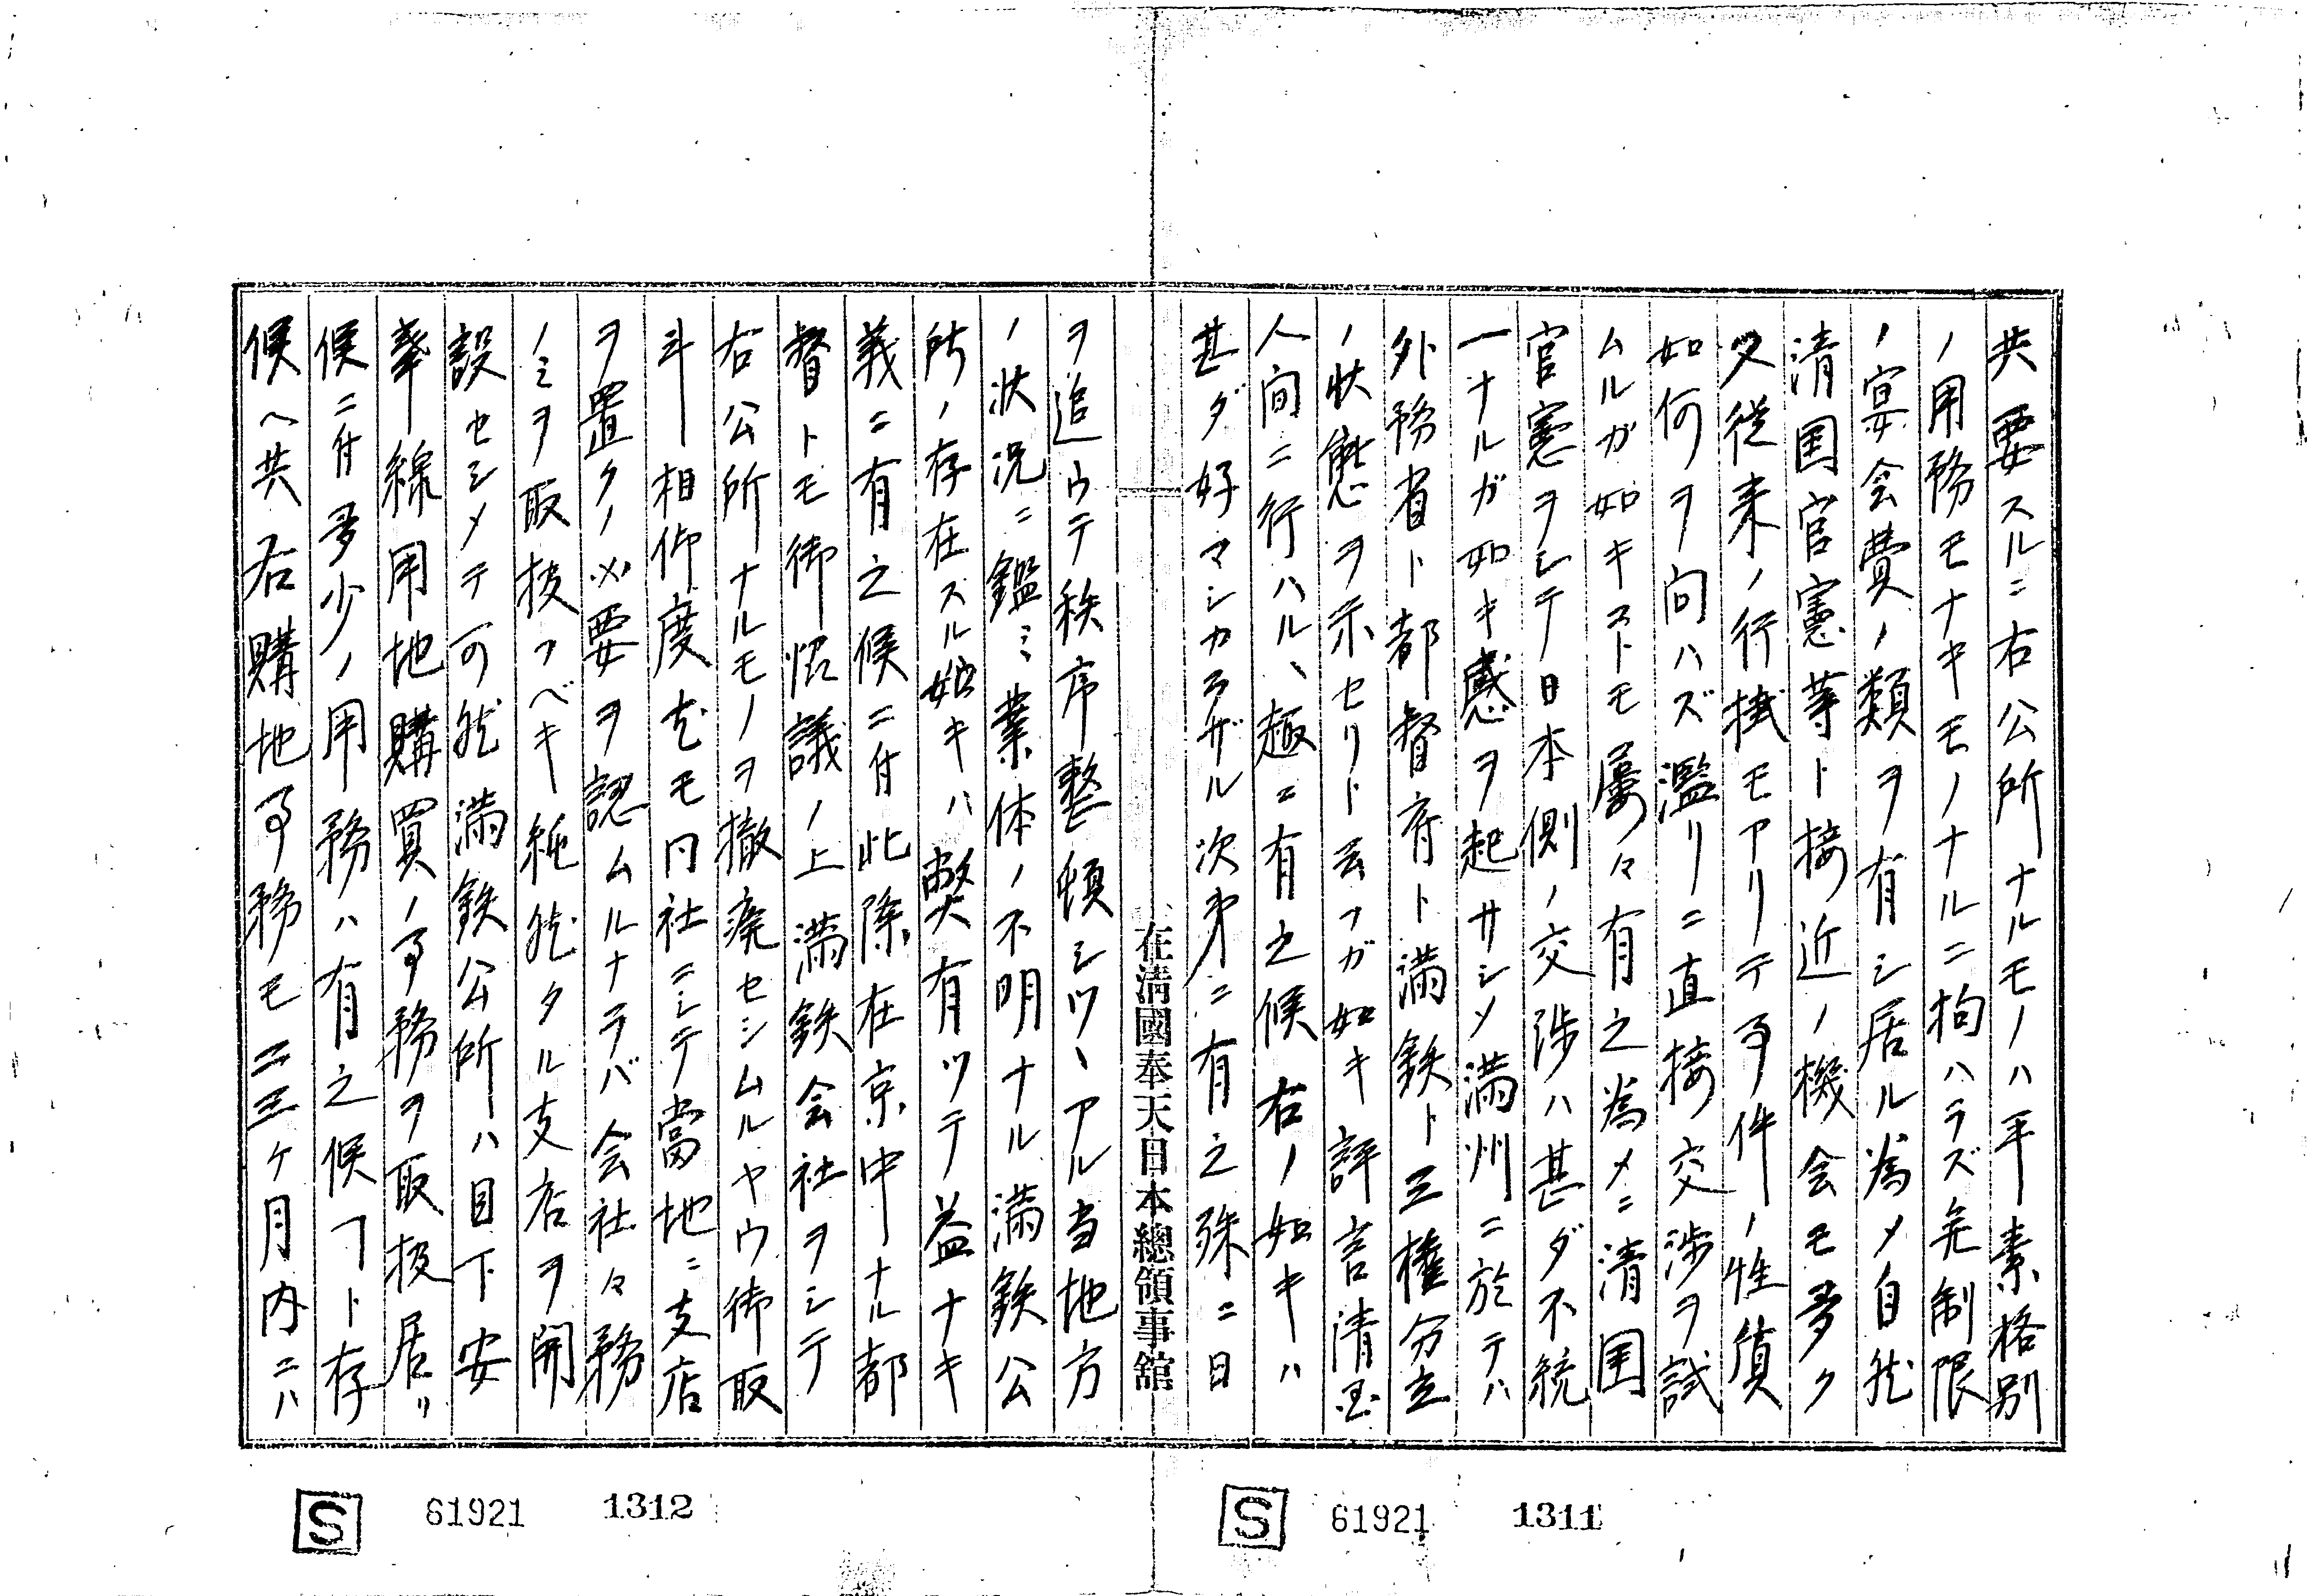 共要スルニ右公所ナルモノハ平素格別
ノ用務モナキモノナルニ拘ハラズ無制限
ノ宴会費ノ類ヲ有シ居ル為メ自然
清国官憲等ト接近ノ機会モ多ク
又従来ノ行掛モアリテ事件ノ性質
如何ヲ問ハズ濫リニ直接交渉ヲ試
ムルガ如キコトモ屡々有之為メニ清国
官憲ヲシテ日本側ノ交渉ハ甚ダ不統
一ナルガ如キ感ヲ起サシメ満州ニ於テハ
外務省ト都督府ト満鉄ト三権分立
ノ状態ヲ示セリト云フガ如キ評言清国
人間ニ行ハルヽ趣ニ有之候右ノ如キハ
甚ダ好マシカラザル次第ニ有之殊ニ日
在淸國奉天日本總領事舘
ヲ追ウテ秩序整頓シツヽアル当地方
ノ状況ニ鑑ミ業体ノ不明ナル満鉄公
所ノ存在スル如キハ弊有ツテ益ナキ
義ニ有之候ニ付此際在京中ナル都
督トモ御協議ノ上満鉄会社ヲシテ
右公所ナルモノヲ撤廃セシムルヤウ御取
斗相仰度尤モ同社ニシテ當地ニ支店
ヲ置クノ必要ヲ認ムルナラバ会社々務
ノミヲ取扱フベキ純然タル支店ヲ開
設セシメテ可然満鉄公所ハ目下安
奉線用地購買ノ事務ヲ取扱居リ
候ニ付多少ノ用務ハ有之候コト存
候ヘ共右購地事務モ二三ケ月内ニハ
S 61921 1312
S 61921 1311